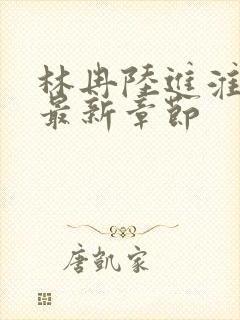 林冉陸進淮
最新章節
唐凱家